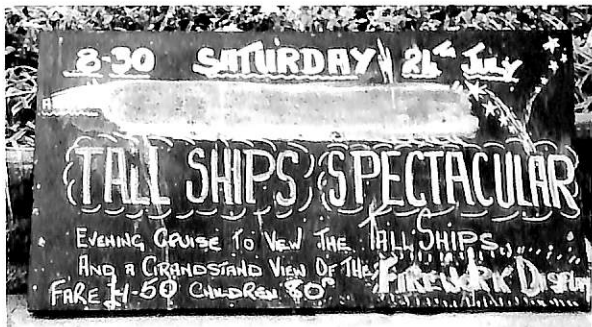 8-30 SATURDAY 21ST JULY
TALL SHIPS SPECTACULAR
EVENING CRUISE TO VEW THE TALL SHIPS
AND A GRANDSTAND VIEW OF THE FIREWORK DISPLAY
FARE £1-50 CHILDREN 80P